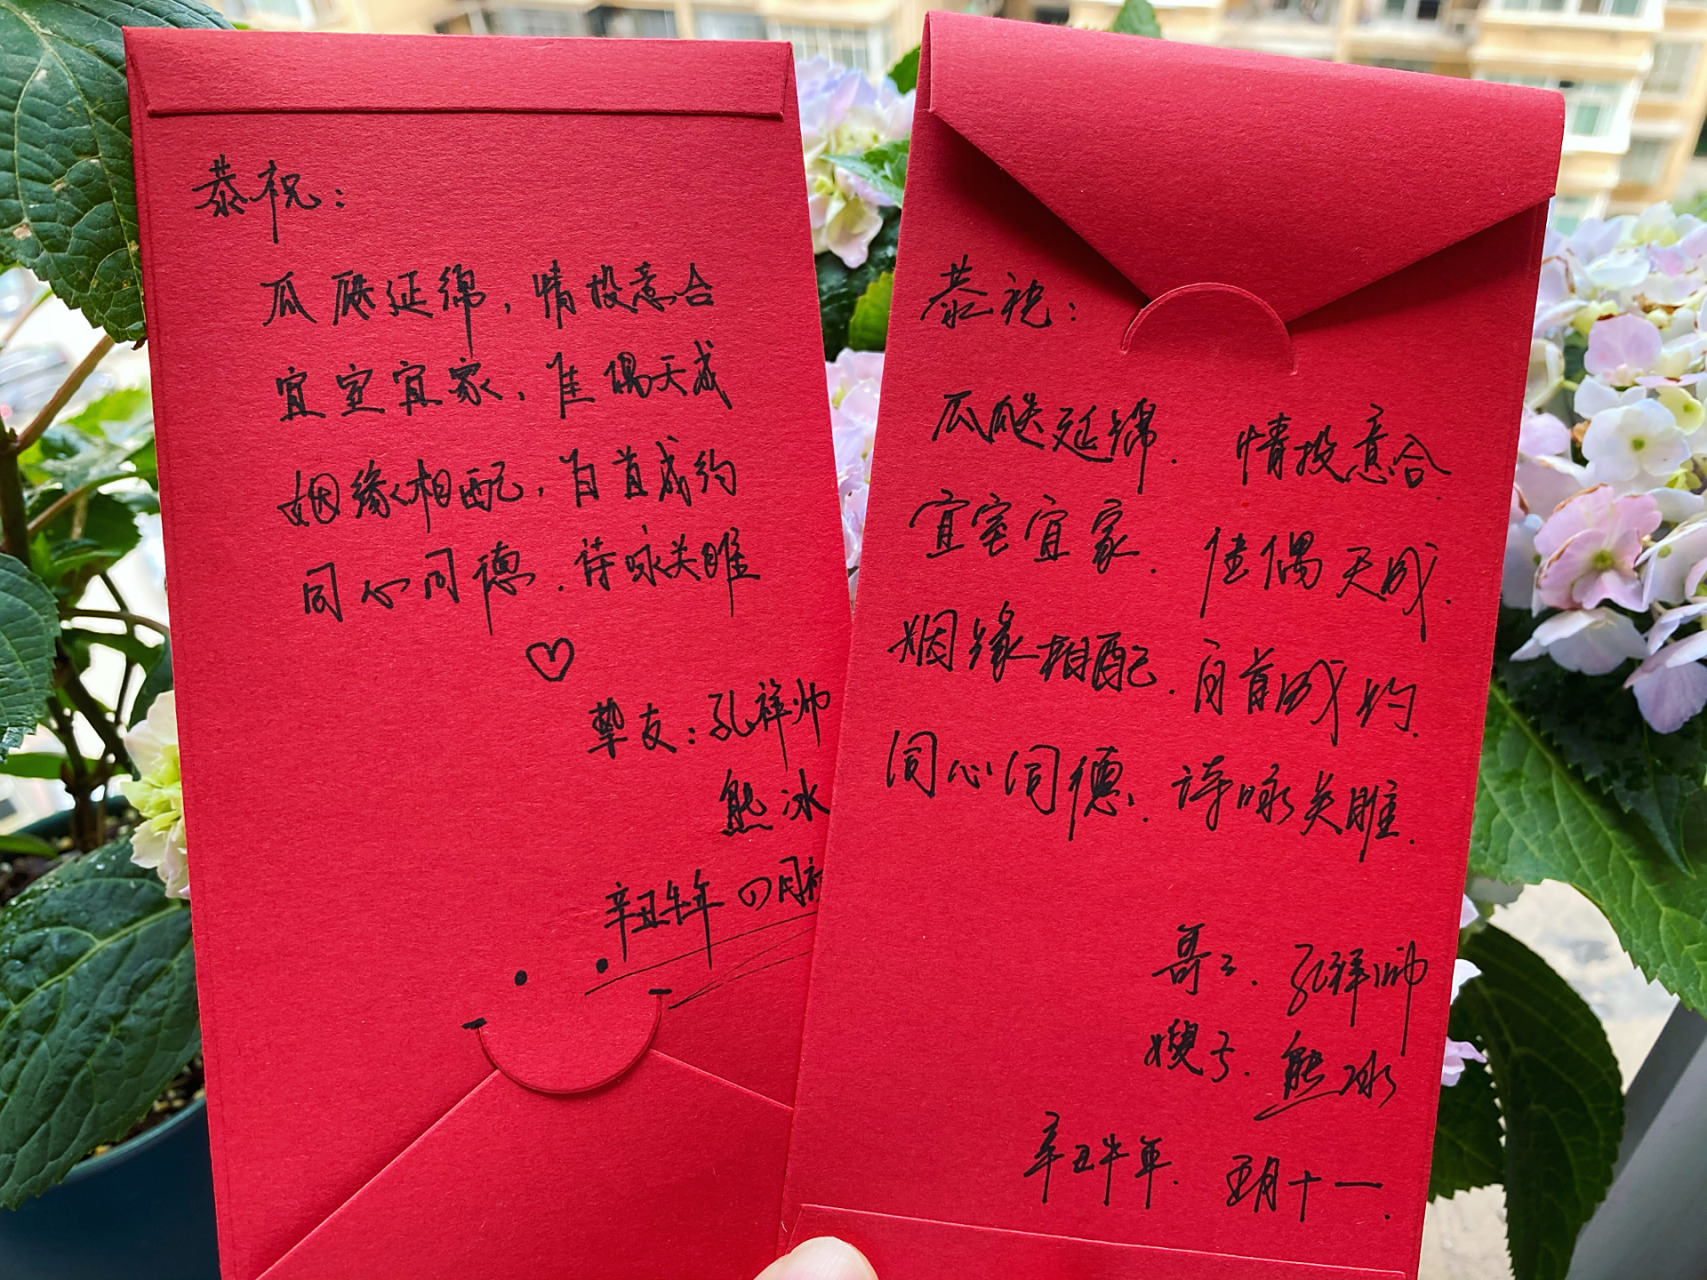 恭祝：
瓜瓞延绵，情投意合
宜室宜家，佳偶天成
姻缘相配，白首成约
同心同德，诗咏关雎
挚友：孔祥帅
熊冰
辛丑牛年 四月初
恭祝：
瓜瓞延绵．情投意合．
宜室宜家．佳偶天成．
姻缘相配．白首成约．
同心同德．诗咏关雎．
哥哥．孔祥帅
嫂子．熊冰
辛丑牛年．五月十一．